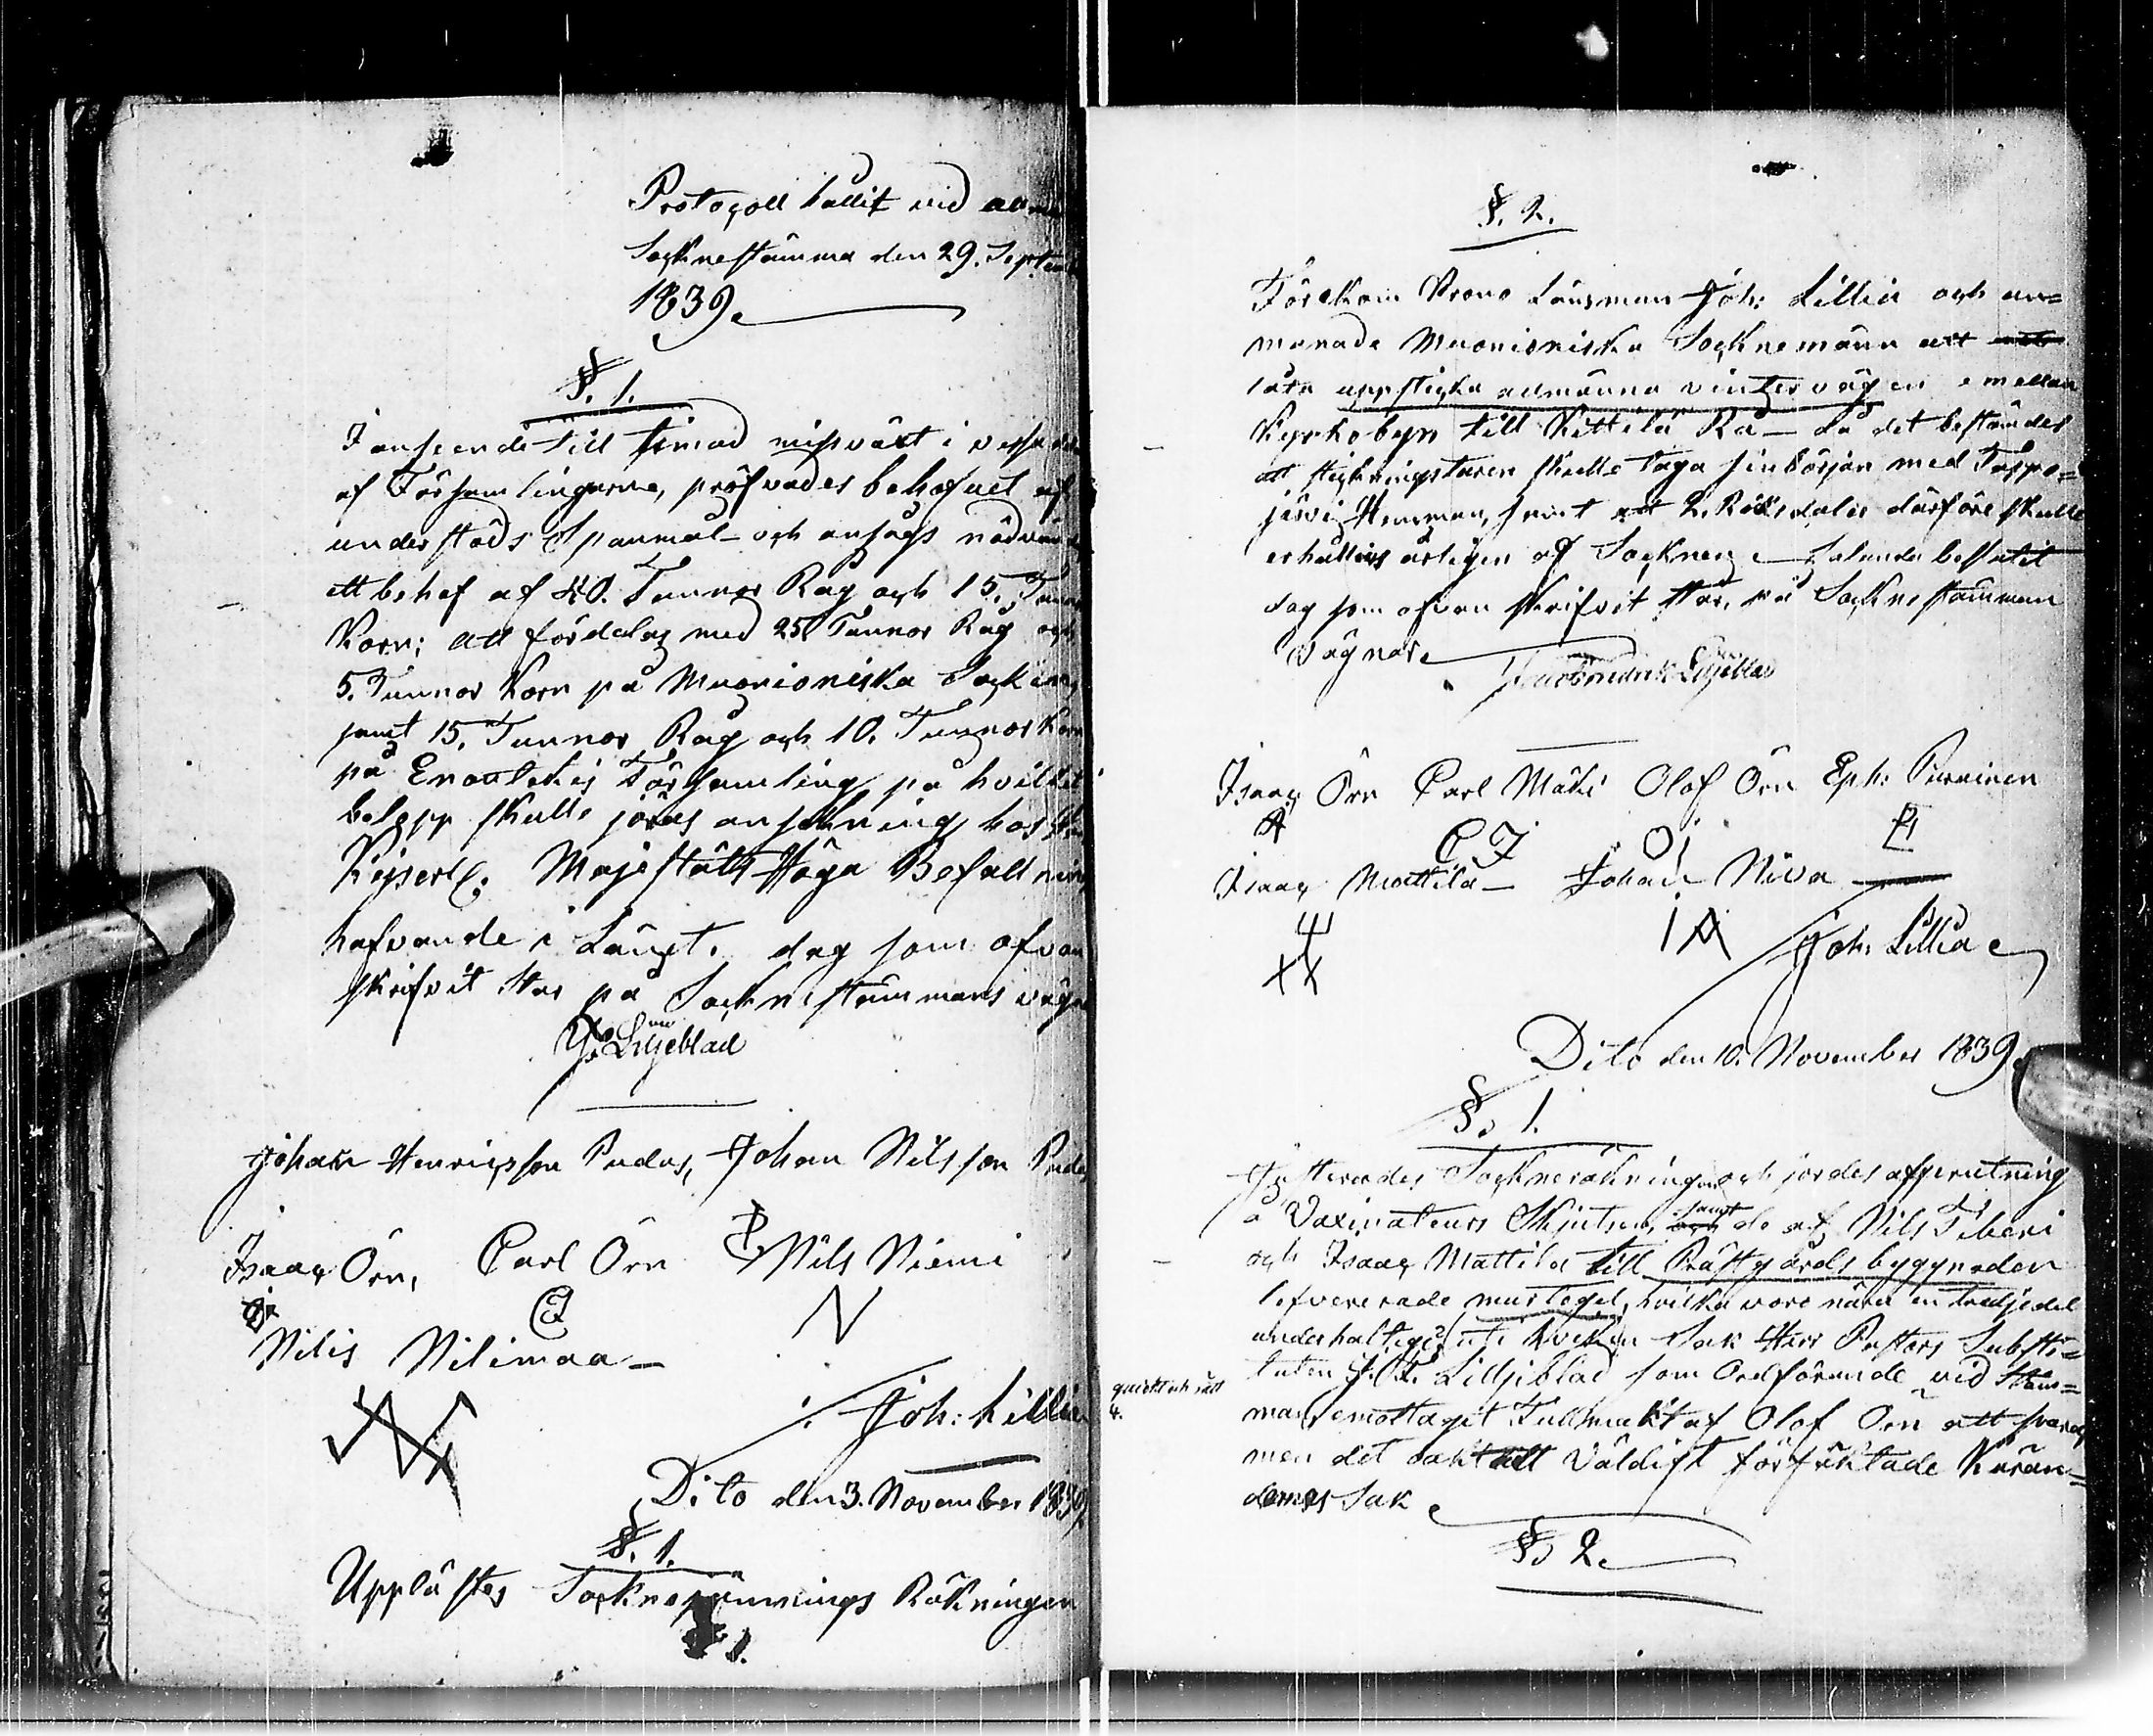 Protocoll hållit vid allmän
Socknestämma den 29. Septemb
1839.
§. 1.
I anseende till timad missväxt i vissa delar
af Församlingarne, pröfvades behofvet af
understöds Spanmål och ansågs nödvändigt
ett behof af 40. Tunnor Råg och 15. Tunnor
Korn; att fördelas med 25 Tunnor Råg och
5. Tunnor Korn på Muonioniska Sockn
samt 15. Tunnor Råg och 10. Tunnor Korn
på Enontekis Församling, på hvilket
belopp skulle jöras ansökning hos
Kejserl: Majestäts Höga Befallning
hafvande i Länet. dag som ofvan
skrifvit står på Socknestämmans vägnar
J. F. Liljeblad
Johan Henricsson Pudas, Johan Nilsson Pudas
Isaac Örn, Carl Örn Nils Niemi
CJ N
Nilis Nilimaa
Joh: Lillia
Dito den 3. November 1839
§. 1.
Upplästes Sockne Räkningen
§. 2.
Förekom Krono Länsman Joh: Lillia och an=
manade Muonioniska Socknemänn att
låta uppsticka allmänna vintervägen emellan
Kyrkobyn till Kittilä Rå då det bestämdes
att stickningsturen skulle taga sin början med
järvi Hemman, samt att 2. Riksdaler därföre skulle
erhållas årligen af Socknen Sålunda beslutit
dag som ofvan skrifvit står, på Socknestämman
vägnar
Jacob Fredrik Liljeblad
Isaac Örn Carl Mäki Olof Örn Eph:
CJ OJ
Isaac Mattila Johan Niva
Joh. Lillia
Dito den 10. November 1839.
§. 1.
Justerades Sockneräkningen och jordes afprutning
å Vaxinateurs Skjutsen, samt de af Nils Fiberi
och Isaac Mattila till Prästgårds byggnaden
lefvererade murtegel, hvilka voro nära en tredjedel
underhaltige; uti hvilken Sak Herr Pastors Substi=
tuten J. F. Liljeblad som Ordförande vid Stäm=
man emottagit Fullmakt af Olof Örn att svara,
men det oaktadt väldigt förfäktade Käran=
dernes Sak
§. 2.